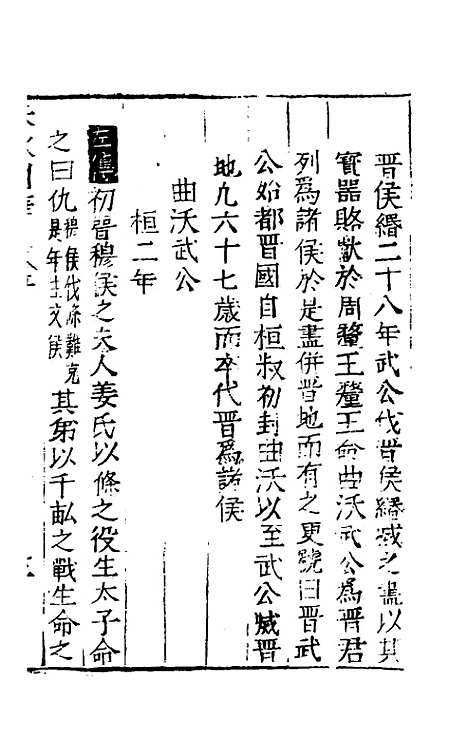 晉侯緡二十八年武公伐晉侯緡滅之盡以其
寶器賂獻於周釐王釐王命曲沃武公爲晉君
列爲諸侯於是盡併晉地而有之更號曰晉武
公始都晉國自桓叔初封曲沃以至武公滅晉
也凡六十七歲而卒代晉爲諸侯
曲沃武公
桓二年
左傳初晉穆侯之夫人姜氏以條之役生太子命
之曰仇穆侯伐條難克是年生文侯其弟以千畝之戰生命之